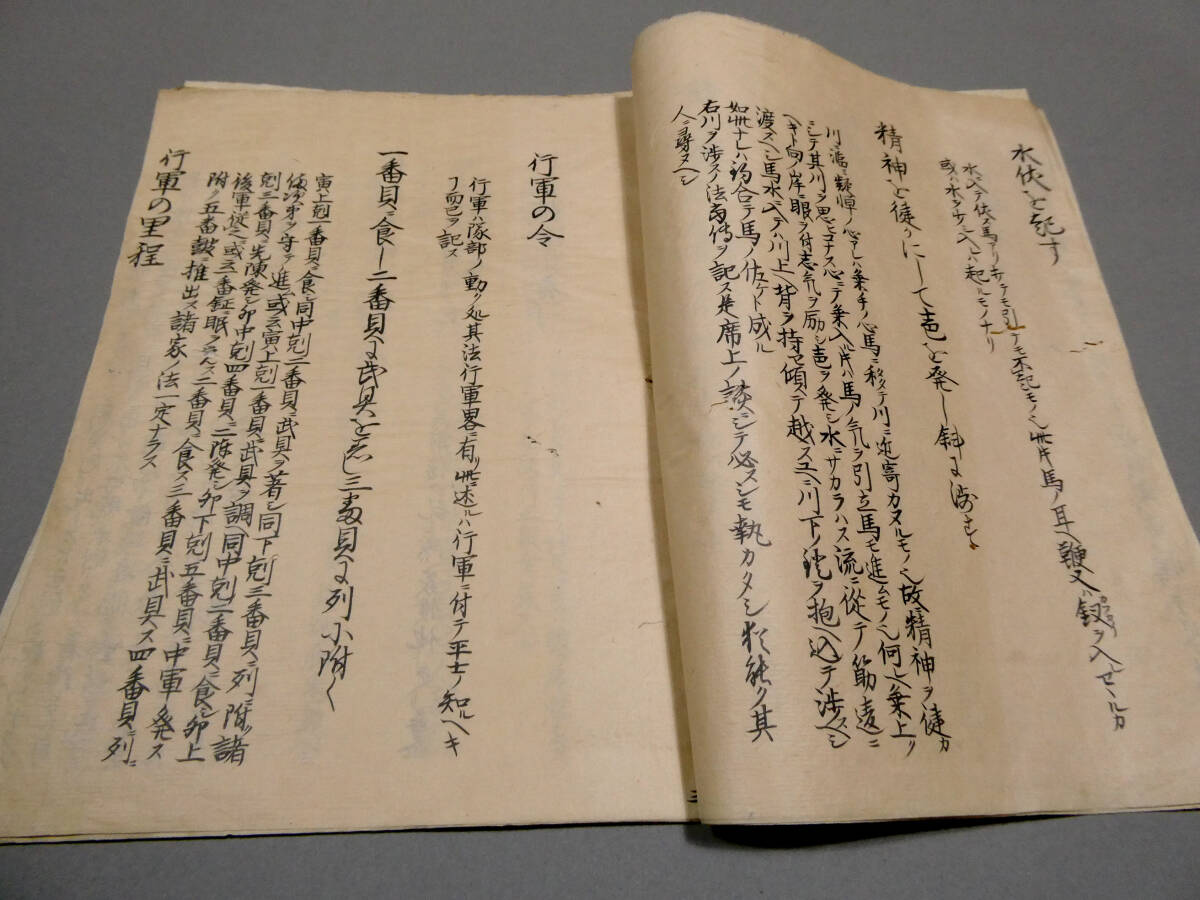 水伏を起す
水ニ入テ伏ス馬アリサテモ引テモ不起モノ也此片馬ノ耳ヘ鞭又ハ釼ヲ入セールカ
或ハ水ヲサシ入レハ起ルモノナリ
精神を健かにして声を発し斜に渉す
川ニ臨ミ疑惧ノ心アレハ乗手ノ心馬ニ移テ川ニ近寄カヌルモノ也故精神ヲ健カ
ニシテ其川ヲ思ヒコナス心ニテ乗入ル片ハ馬ノ気ヲ引立馬モ進ムモノ也何レヘ乗上ル
ヘキト向ノ岸ニ眼ヲ付志気ヲ励シ声ヲ発シ水ニサカラハス流ニ従テ筋違ニ
渡スヘシ馬水ニ入テハ川上ヘ背ヲ持セ傾ステ越スユヘニ川下ノ鐙ヲ抱ヘ込テ渉スヘシ
如此ナレハ釣合テ馬ノ佐ケト成ル
右川ヲ渉スノ法古傳ヲ記ス是席上ノ談ニシテ必スシモ執カタシ猶能ク其
人ニ尋ヌヘシ
三
行軍の令
行軍ハ隊部ノ動ク処其法行軍畧ニ有リ此ニ述ルハ行軍ニ付テ平士ノ知ルヘキ
丁而已ヲ記ス
一番貝ニ食し二番貝に武具を忘し三番貝に列に附く
寅上尅一番貝ニ食シ同中尅二番貝ニ武具ヲ著シ同下尅三番貝ニ列ニ附ク諸
傍次第ヲ守テ進ム或云寅上尅一番貝ニ武具ヲ調ヘ同中尅二番貝ニ食シ卯上
尅三番貝ニ先陳発シ卯中尅四番貝ニ二陣発シ卯下尅五番貝ニ中軍発ス
後軍従之或云一番鉦ニ眠ヲサマス二番貝ニ食ス三番貝ニ武具ス四番貝ニ列ニ
附ク五番皷ニ推出ス諸家ノ法一定ナラス
行軍の里程